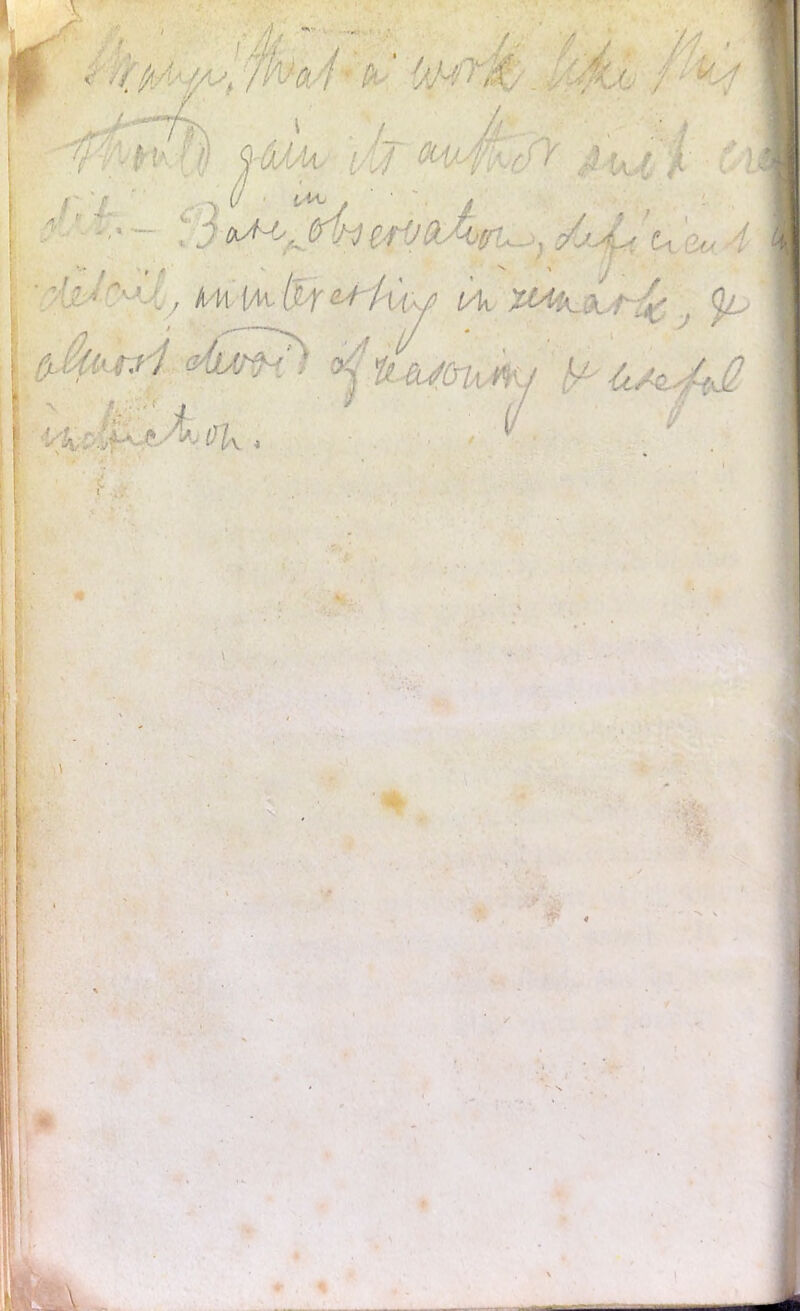 Strange! that a work like this
should gain its author such cre-
dit. — Bare in observation, deficient in
detail, uninteresting in remark, &
almost devoid of reasoning & useful
induction.